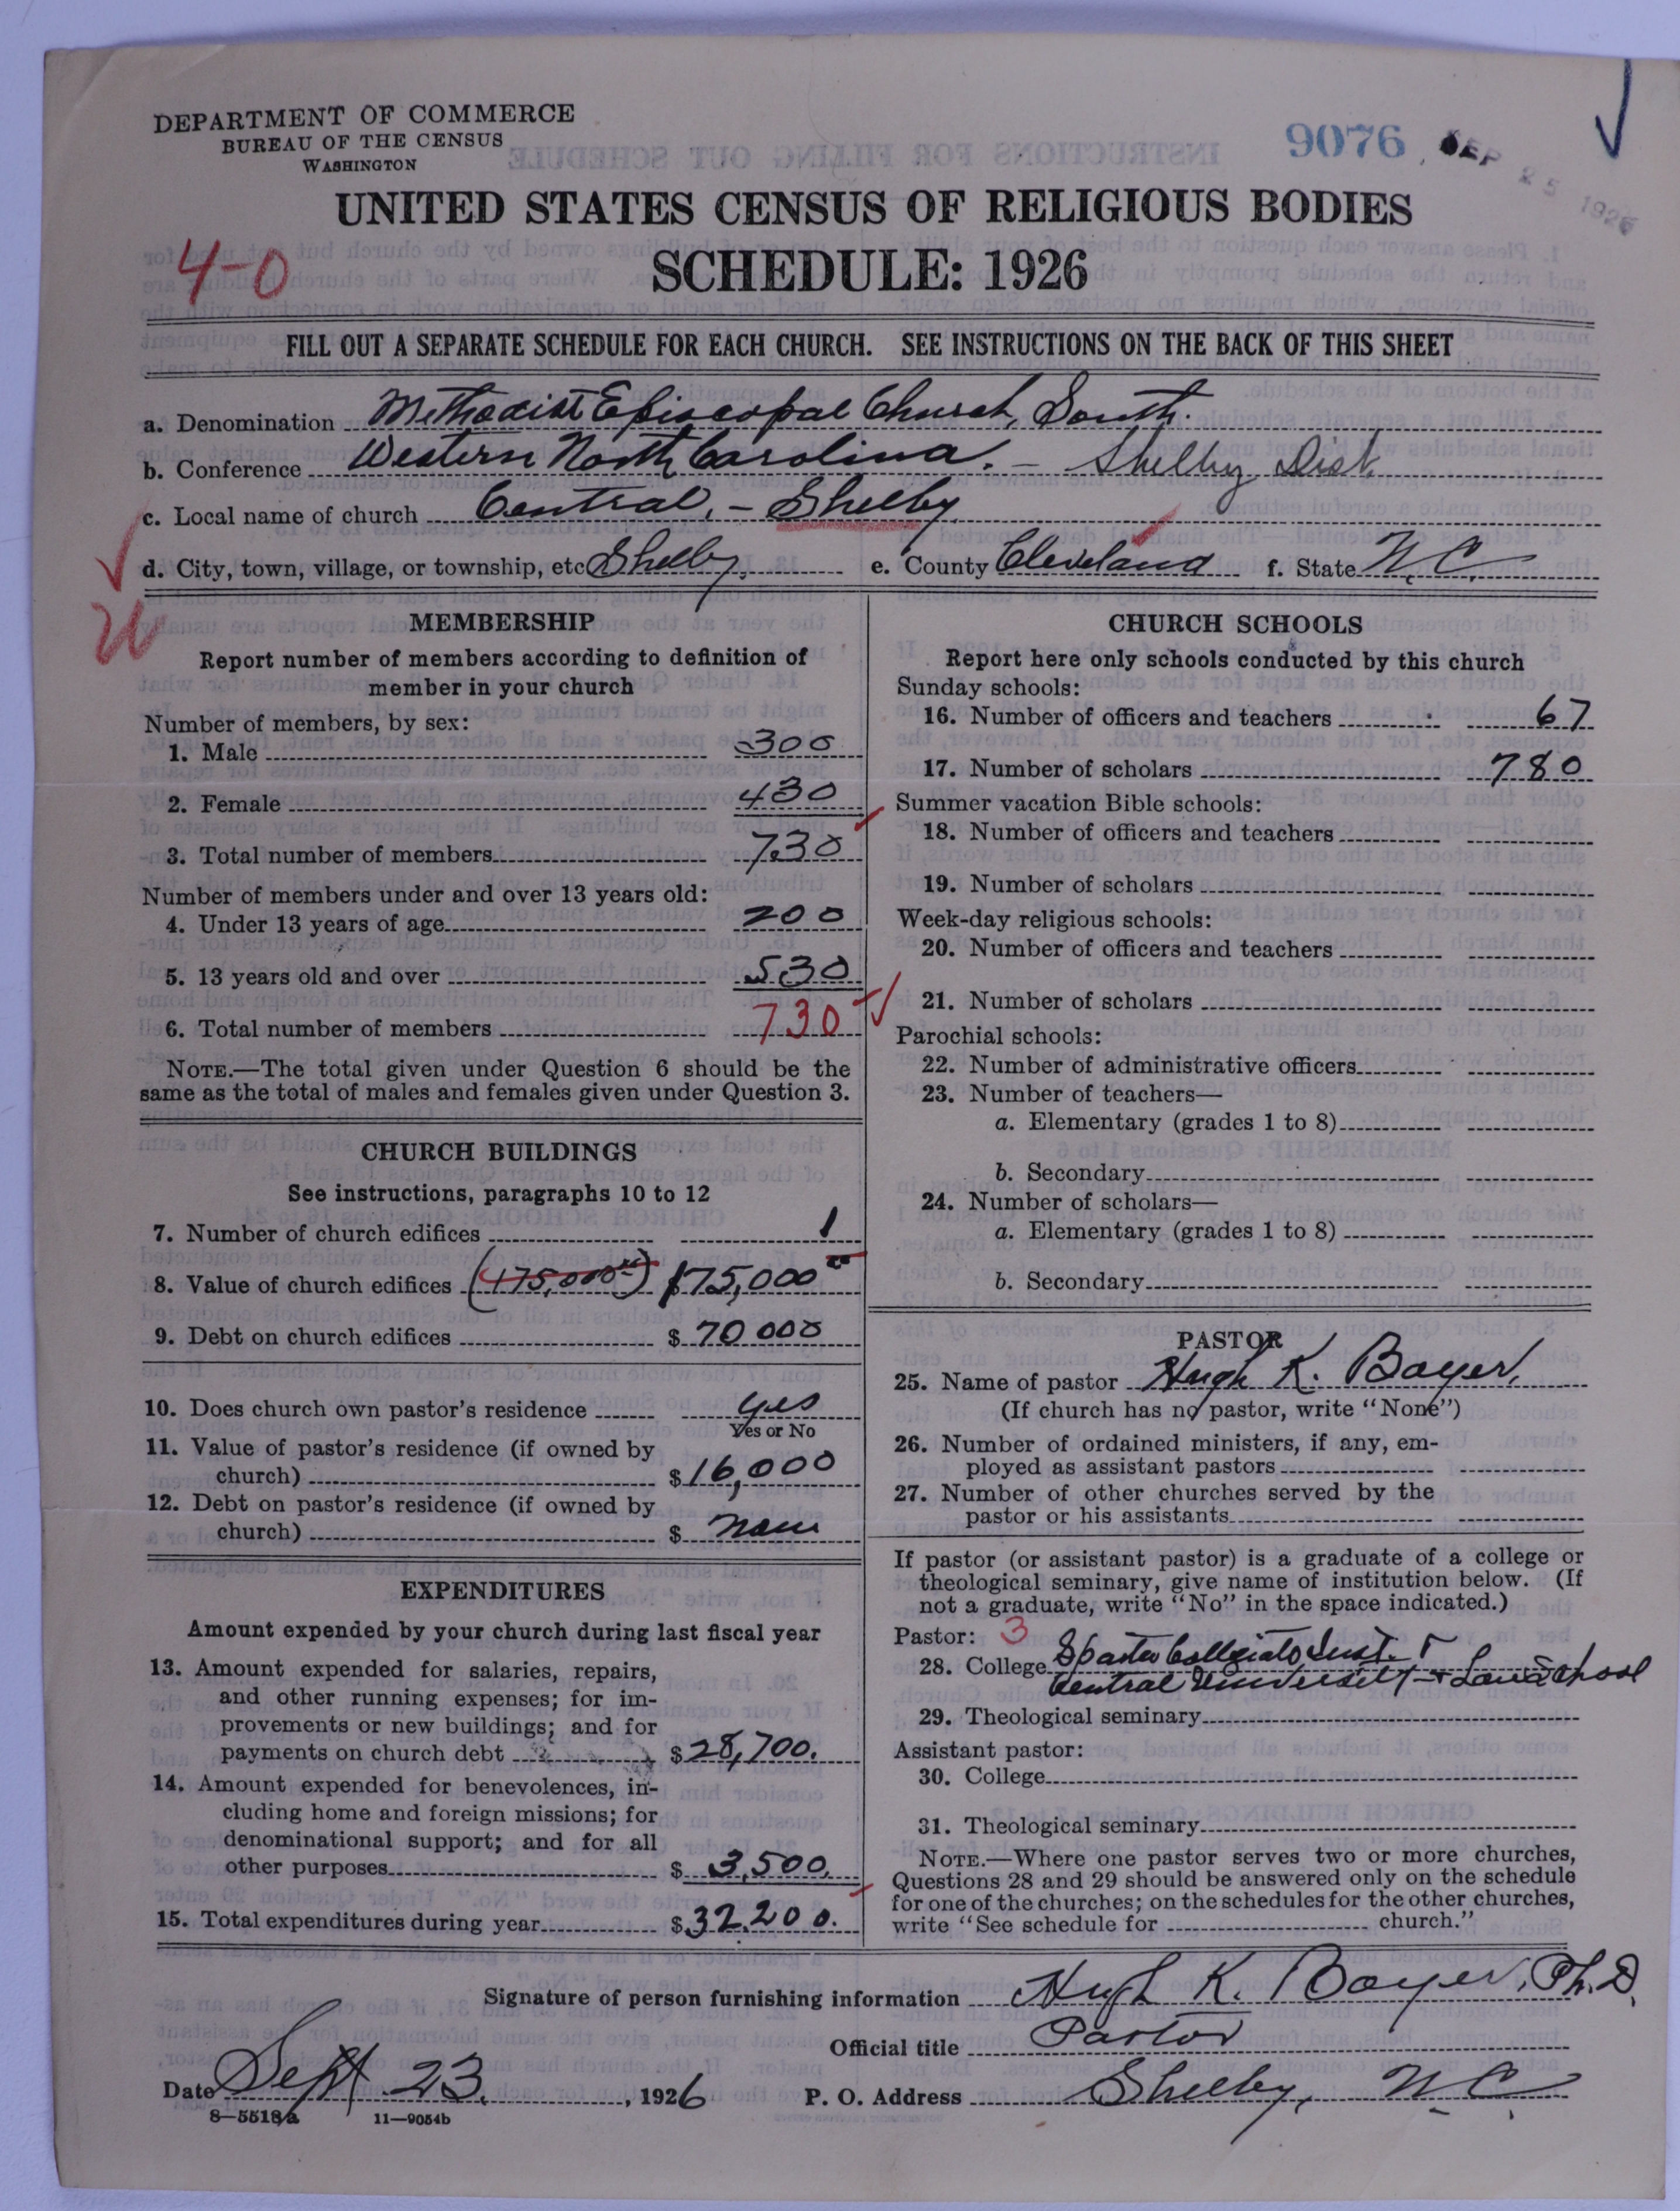 DEPARTMENT OF COMMERCE
BUREAU OF THE CENSUS
WASHINGTON
9076
SEP 25 1926
UNITED STATES CENSUS OF RELIGIOUS BODIES
4-0
SCHEDULE: 1926
FILL OUT A SEPARATE SCHEDULE FOR EACH CHURCH. SEE INSTRUCTIONS ON THE BACK OF THIS SHEET
a. Denomination Methodist Episcopal Church, South.
b. Conference Western North Carolina. - Shelby Dist
c. Local name of church Central, - Shelby
d. City, town, village, or township, etc Shelby, e. County Cleveland f. State N.C.
MEMBERSHIP
Report number of members according to definition of
member in your church
Number of members, by sex:
1. Male 300
2. Female 430
3. Total number of members 730
Number of members under and over 13 years old:
4. Under 13 years of age 200
5. 13 years old and over 530
6. Total number of members 730
NOTE.—The total given under Question 6 should be the
same as the total of males and females given under Question 3.
CHURCH BUILDINGS
See instructions, paragraphs 10 to 12
7. Number of church edifices 1
8. Value of church edifices (175,000 00) $175,000 00
9. Debt on church edifices $ 70 000
10. Does church own pastor's residence yes
Yes or No
11. Value of pastor's residence (if owned by
church) $ 16,000
12. Debt on pastor's residence (if owned by
church) $ none
EXPENDITURES
Amount expended by your church during last fiscal year
13. Amount expended for salaries, repairs,
and other running expenses; for im-
provements or new buildings; and for
payments on church debt $ 28,700.
14. Amount expended for benevolences, in-
cluding home and foreign missions; for
denominational support; and for all
other purposes $ 3,500.
15. Total expenditures during year $ 32.200.
CHURCH SCHOOLS
Report here only schools conducted by this church
Sunday schools:
16. Number of officers and teachers 67
17. Number of scholars 780
Summer vacation Bible schools:
18. Number of officers and teachers
19. Number of scholars
Week-day religious schools:
20. Number of officers and teachers
21. Number of scholars
Parochial schools:
22. Number of administrative officers
23. Number of teachers—
a. Elementary (grades 1 to 8)
b. Secondary
24. Number of scholars—
a. Elementary (grades 1 to 8)
b. Secondary
PASTOR
25. Name of pastor Hugh K. Boyer,
(If church has no pastor, write "None")
26. Number of ordained ministers, if any, em-
ployed as assistant pastors
27. Number of other churches served by the
pastor or his assistants
If pastor (or assistant pastor) is a graduate of a college or
theological seminary, give name of institution below. (If
not a graduate, write "No" in the space indicated.)
Pastor: 3
28. College Collegiate Inst. &
Central University + Law School
29. Theological seminary
Assistant pastor:
30. College
31. Theological seminary
NOTE.—Where one pastor serves two or more churches,
Questions 28 and 29 should be answered only on the schedule
for one of the churches; on the schedules for the other churches,
write "See schedule for church."
Signature of person furnishing information Hugh K. Boyer, Ph.D.
Official title Pastor
Date Sept. 23, 1926 P. O. Address Shelby, N C
8—5518a 11—9054b